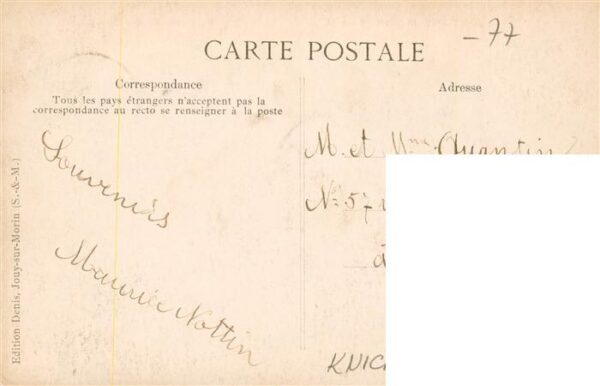 - 77
CARTE POSTALE
Correspondance
Tous les pays étrangers n'acceptent pas la
correspondance au recto se renseigner à la poste
Adresse
Souvenirs
Maurice Nottin
M. et Mme Quentin
No 57
à
KNIC
Edition Denis, Jouy-sur-Morin (S.-&-M.)